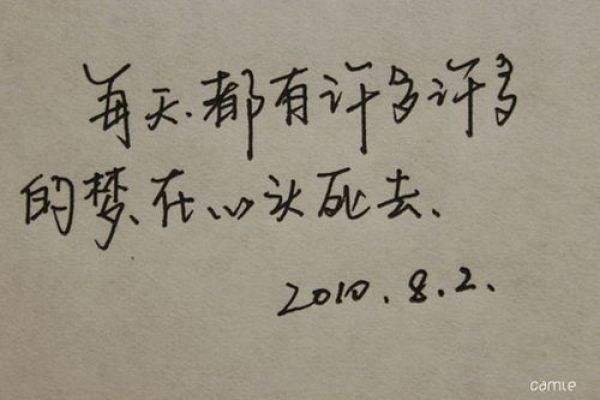 每天.都有许多许多
的梦、在心头死去、
2010.8.2.
camle